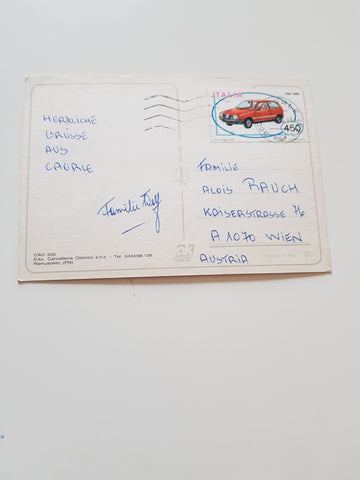 HERZLICHE
GRÜSSE
AUS
CAORLE
Familie
CAO 530
Ediz. Cancelleria Odorico s.n.c. - Tel. 0434/68.129
Ramuscello (PN)
ITALIA
450
FAMILIE
ALOIS RAUCH
KAISERSTRASSE 76
A 1070 WIEN
AUSTRIA